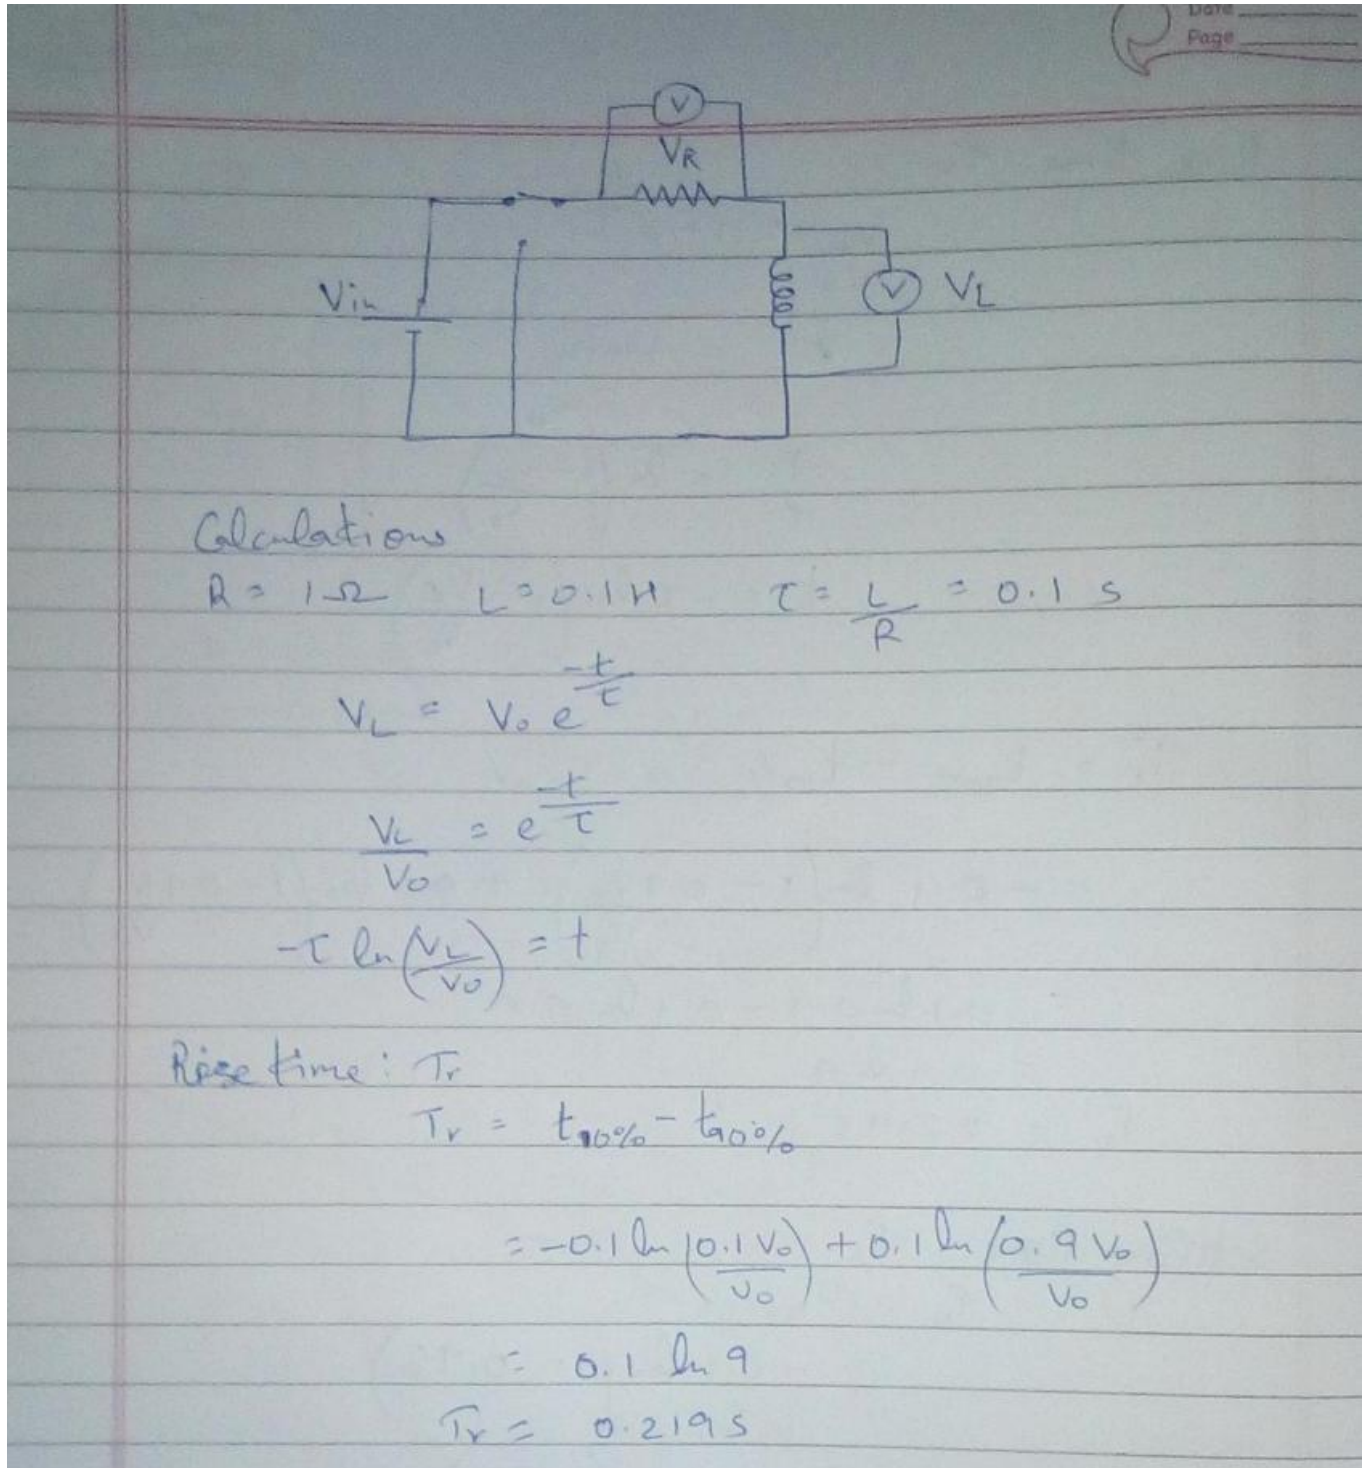 Date
Page
V
VR
Vin
V VL
Calculations
R = 1Ω L = 0.1H τ = L/R = 0.1 s
VL = V₀ e^(-t/τ)
VL/V₀ = e^(-t/τ)
-τ ln(VL/V₀) = t
Rise time: Tr
Tr = t10% - t90%
= -0.1 ln(0.1 V₀/V₀) + 0.1 ln(0.9 V₀/V₀)
= 0.1 ln 9
Tr = 0.219 s